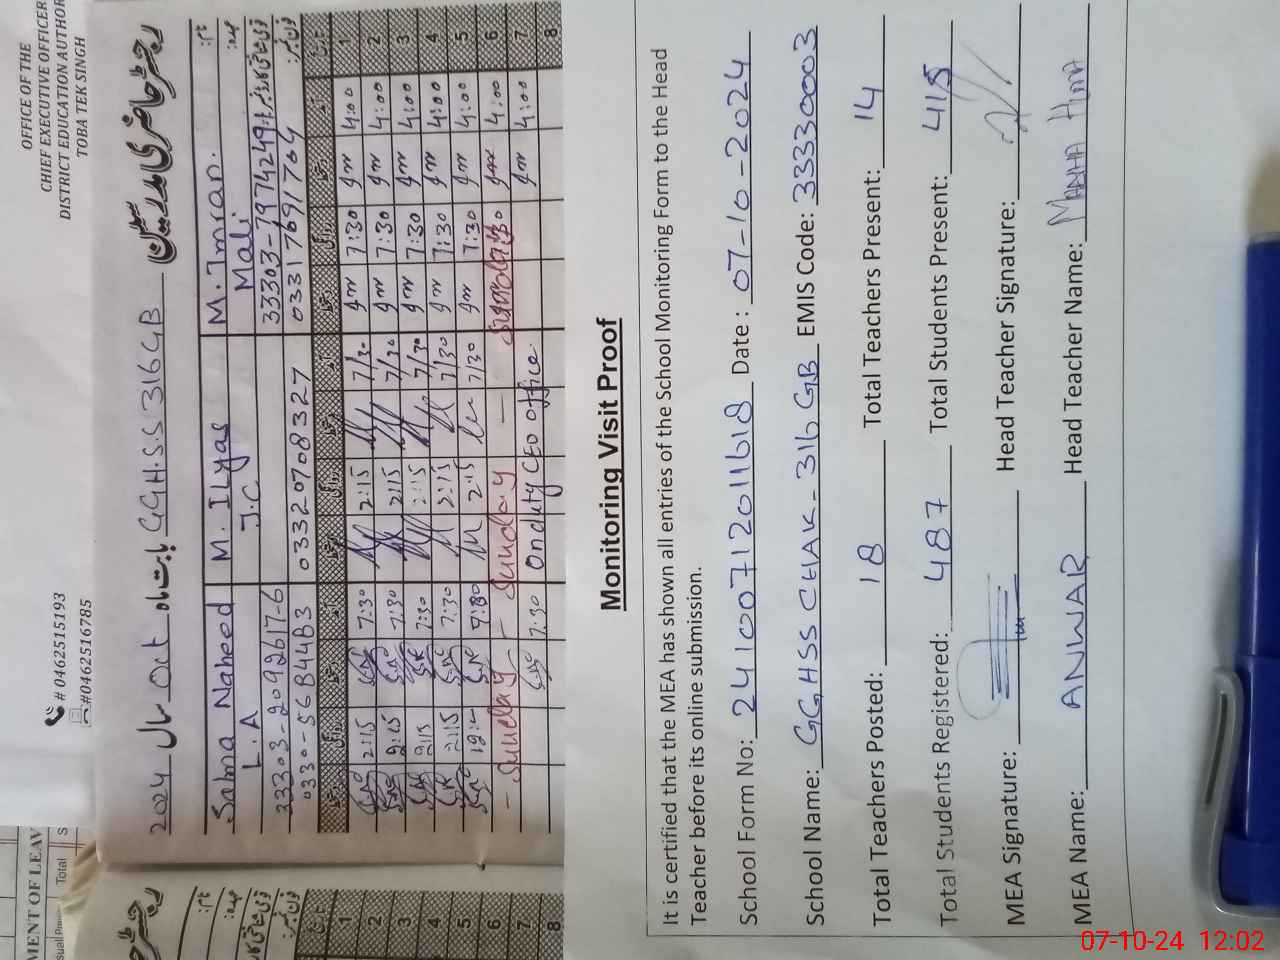 OFFICE OF THE
CHIEF EXECUTIVE OFFICER
DISTRICT EDUCATION AUTHOR
TOBA TEK SINGH
# 0462515193
#0462516785
MENT OF LEAV
Total
2024 سال Oct بابت ماہ G.G.H.S.S 316 GB رجسٹر حاضری مدرسین
Salma Naheed M. ILyas M. Imran. نام:
L. A J.C Mali عہدہ:
33303-2092617-6 33303-7974249-
0330-5684483 03320708327 03317691764
2:15 7:30 2:15 7/30 7:30 4:00 1
2:15 7:30 2:15 7/30 7:30 4:00 2
2:15 7:30 2:15 7/30 7:30 4:00 3
2:15 7:30 2:15 7/30 7:30 4:00 4
7:30 2:15 7/30 7:30 4:00 5
- Sunday - Sunday - 4:00 6
7:30 On duty CEO office. 4:00 7
8
1
2
3
4
5
6
7
8
Monitoring Visit Proof
It is certified that the MEA has shown all entries of the School Monitoring Form to the Head
Teacher before its online submission.
School Form No: 24100712011618 Date : 07-10-2024
School Name: GGHSS CHAK-316 GB EMIS Code: 33330003
Total Teachers Posted: 18 Total Teachers Present: 14
Total Students Registered: 487 Total Students Present: 415
MEA Signature: Head Teacher Signature:
MEA Name: ANWAR Head Teacher Name:
07-10-24 12:02